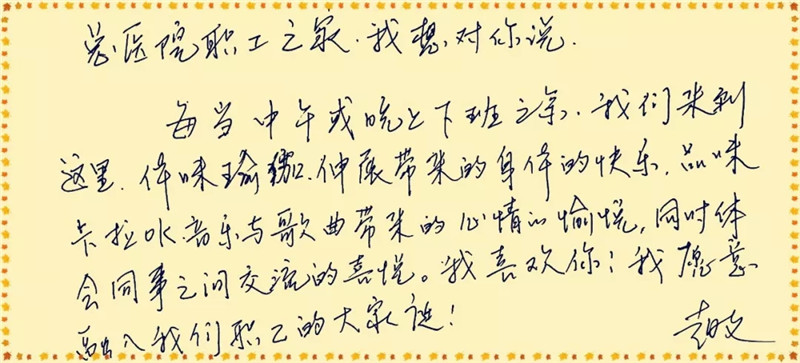 总医院职工之家.我想.对你说.
每当中午或晚上下班之余.我们来到
这里.体味瑜伽.伸展带来的身体的快乐.品味
卡拉OK音乐与歌曲带来的心情的愉悦,同时体
会同事之间交流的喜悦。我喜欢你!我愿意
融入我们职工的大家庭!